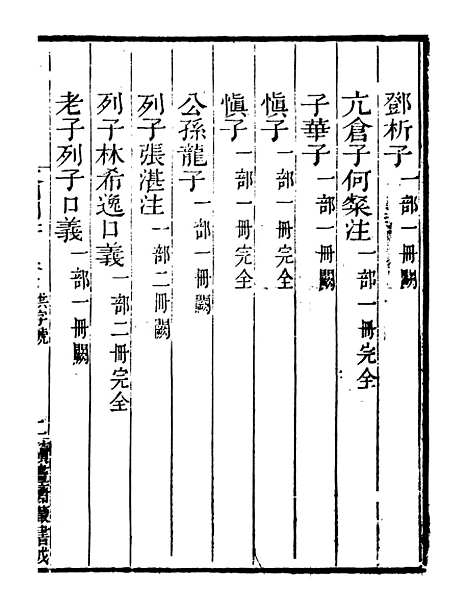 鄧析子一部一冊闕
亢倉子何粲注一部一冊完全
子華子一部一冊闕
愼子一部一冊完全
愼子一部一冊完全
公孫龍子一部一冊闕
列子張湛注一部二冊闕
列子林希逸口義一部二冊完全
老子列子口義一部一冊闕